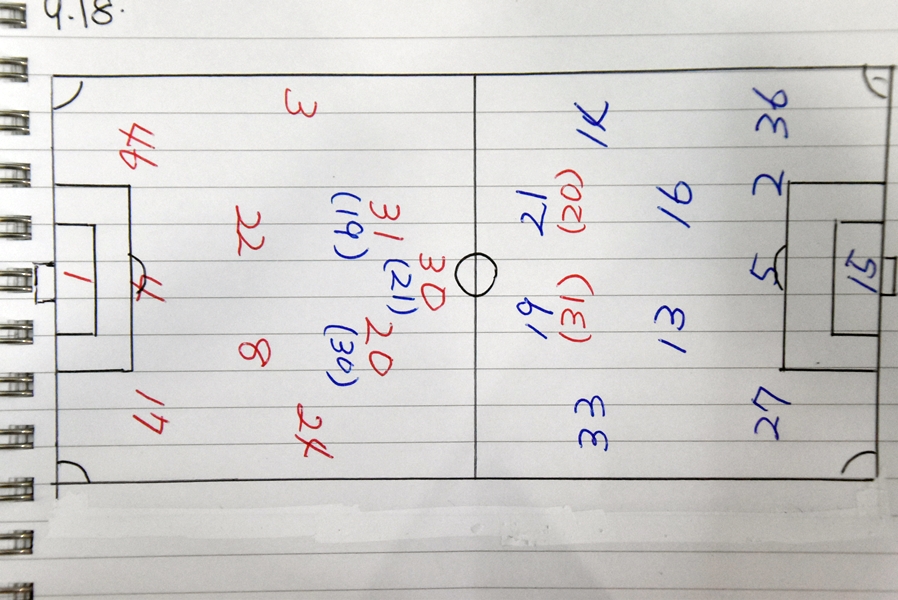 9.18.
1
46
4
17
22
8
3
24
31
(19)
30
(21)
20
(30)
14
21
(20)
19
(31)
33
16
13
36
2
5
27
15